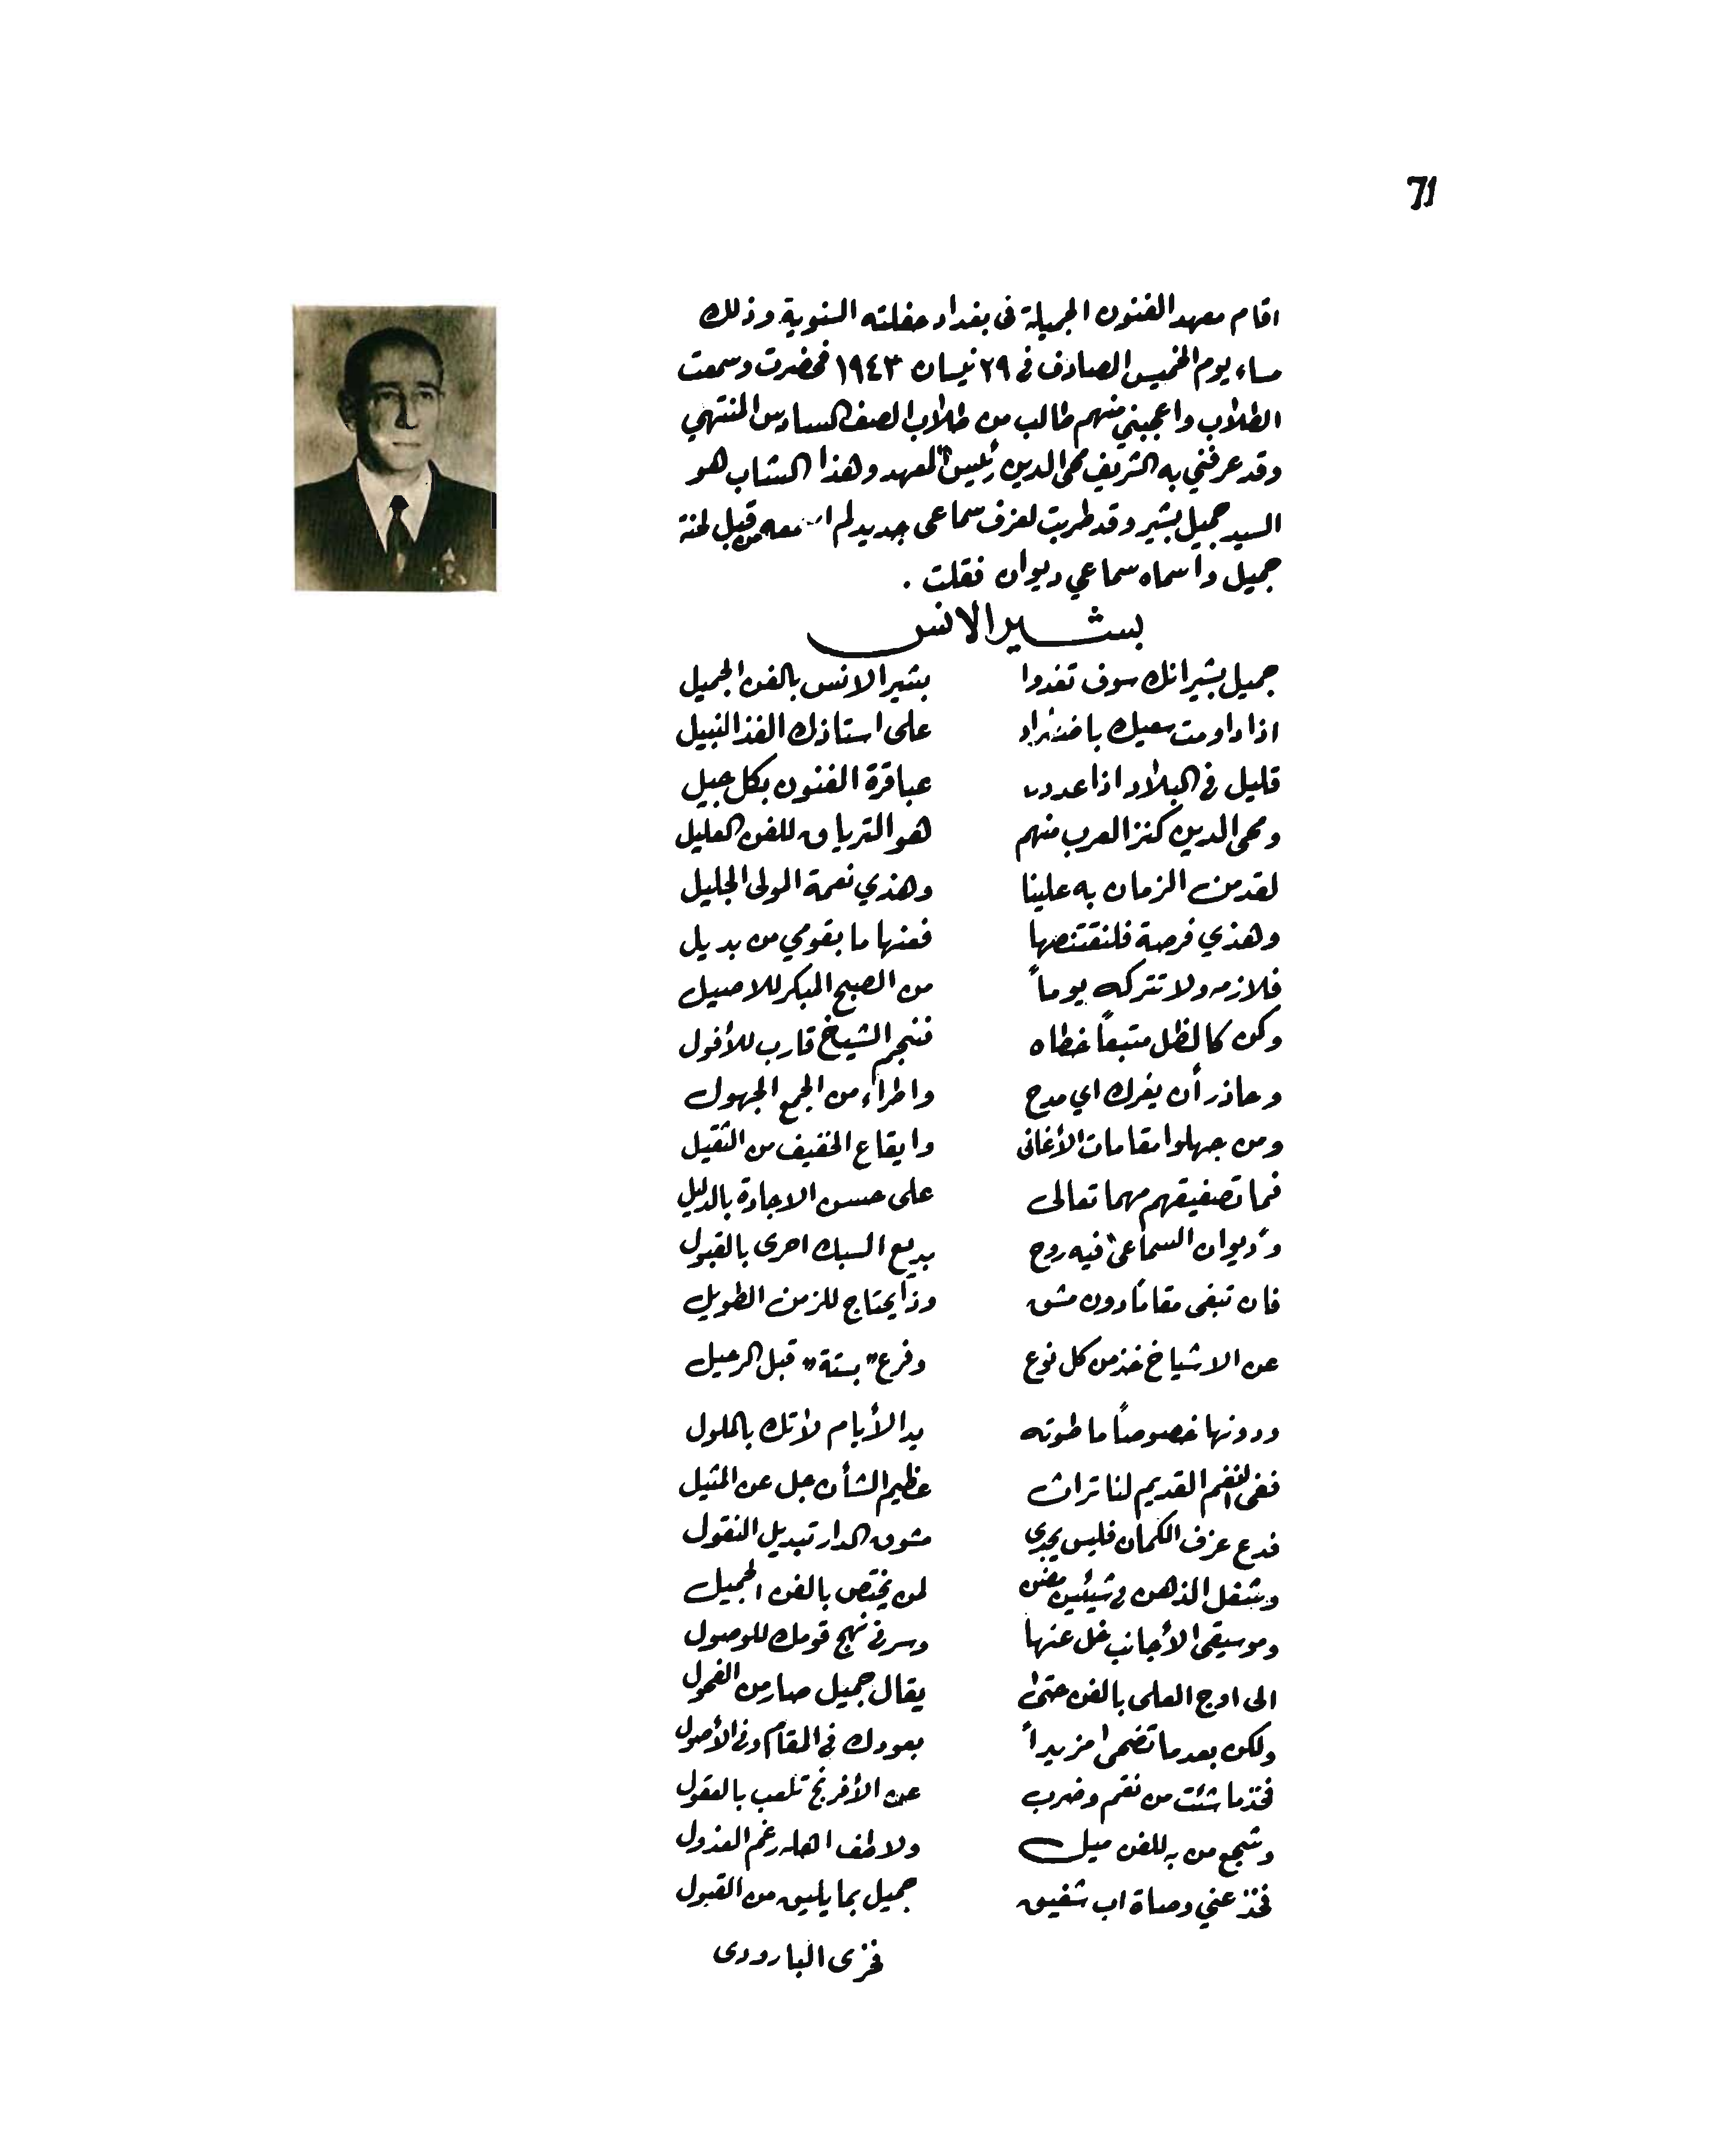 71
اقام معهد الفنون الجميلة في بغداد حفلته السنوية وذلك
مساء يوم الخميس الصادف في ٢٩ نيسان ١٩٤٣ فحضرت وسمعت
الطلاب واعجبني منهم طالب من طلاب الصف السادس المنتهي
وقد عرفني به الشريف محي الدين رئيس المعهد وهذا الشاب هو
السيد جميل بشير وقد طربت لعزف سماعي جديد لم اسمعه من قبل لحنه
جميل وأسماه سماعي ديوان فقلت .
بشير الانس
جميل بشير انك سوف تغدوا بشير الانس بالفن الجميل
اذا داومت سعيك باضطراد على استاذك الفذ النبيل
قليل في البلاد اذا عددنا عباقرة الفنون بكل جيل
ومحي الدين كنز العرب منهم هو الترياق للفن العليل
لقد من الزمان به علينا وهذي نعمة المولى الجليل
وهذي فرصة فلنقتنصها فعنها ما بقومي من بديل
فلازمه ولا تتركه يوماً من الصبح المبكر للاصيل
وكن كالظل متبعاً خطاه فنجم الشيخ قارب للأفول
وحاذر أن يغرك اي مدح واطراء من الجمع الجهول
ومن جهلوا مقامات الأغاني وايقاع الخفيف من الثقيل
فما تصفيقهم مهما تعالى على حسن الاجادة بالدليل
و"ديوان السماعي" فيه روح بديع السبك احرى بالقبول
فان تبغى مقاماً دون مشق وذا يحتاج للزمن الطويل
عن الاشياخ خذ من كل نوع وفرع "بستة" قبل الرحيل
ودونها خصوصاً ما طوته يد الأيام لا تك بالملول
ففي النغم القديم لنا تراث عظيم الشأن جل عن المثيل
فدع عزف الكمان فليس يجدي مشوق الدار تبديل النقول
وشغل الذهن في شيئين مضن لمن يختص بالفن الجميل
وموسيقى الأجانب خل عنها وسر في نهج قومك للوصول
الى اوج العلى بالفن حتى يقال جميل صار من الفحول
ولكن بعد ما تضحى مزيداً بعودك في المقام وفي الأصول
فخذ ما شئت من نغم وضرب عن الأفرنج تلعب بالعقول
وشجع من به للفن ميل ولاطف اهله رغم العذول
فخذ عني وصاة اب شفيق جميل بما يليق من القبول
فخري البارودي